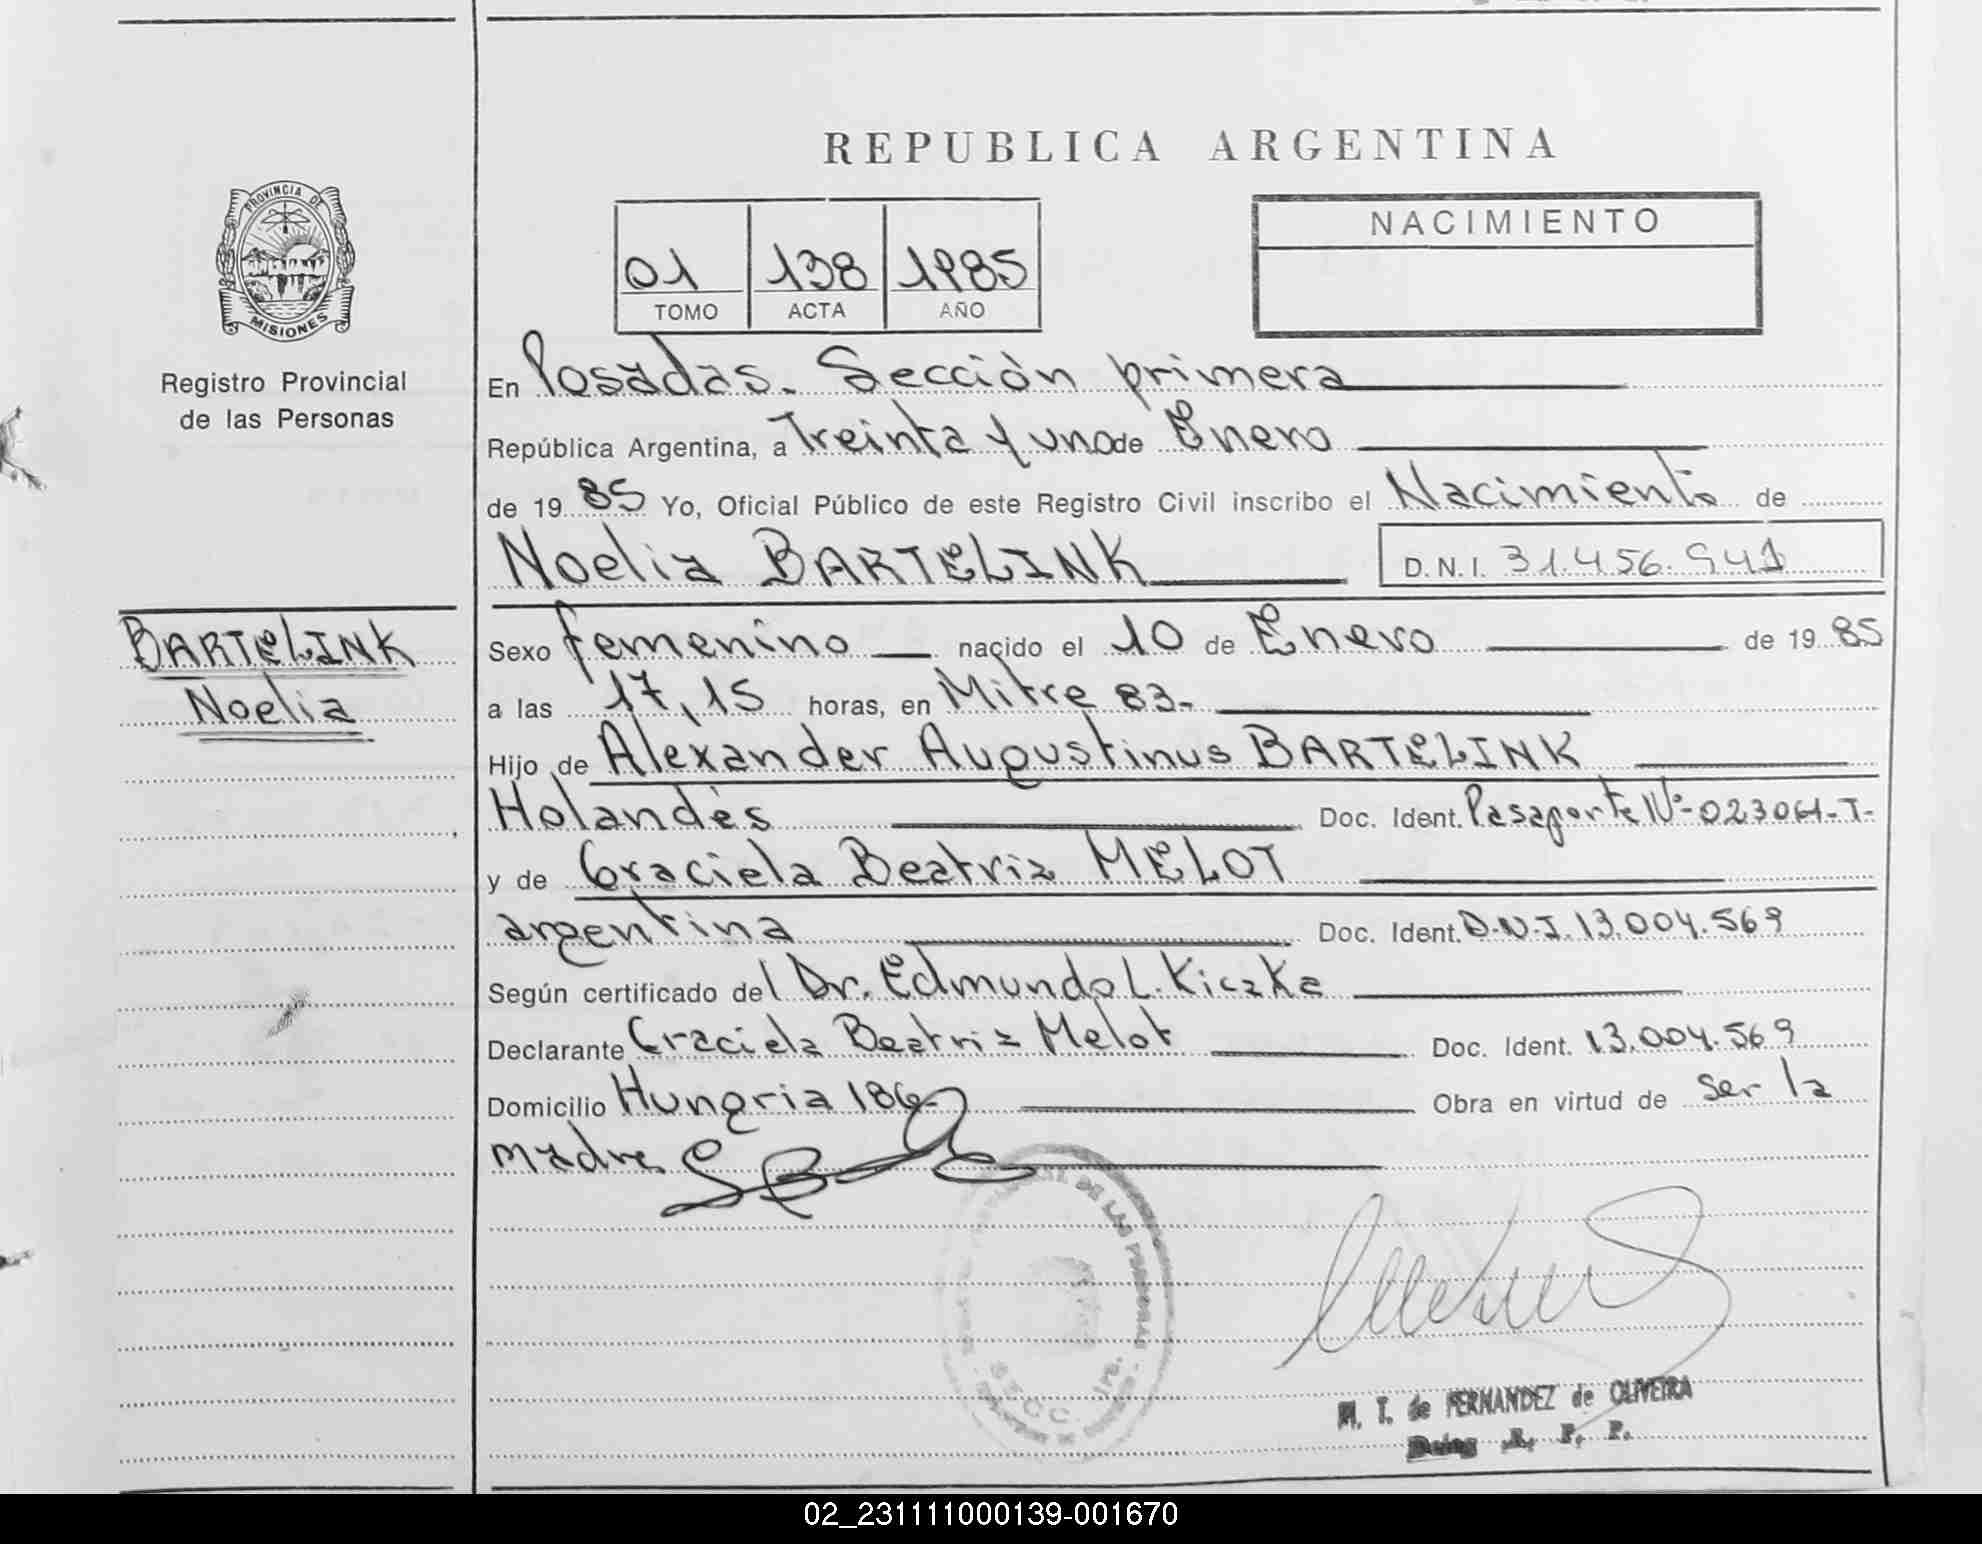 REPUBLICA ARGENTINA
PROVINCIA DE
MISIONES
Registro Provincial
de las Personas
01 138 1985
TOMO ACTA AÑO
NACIMIENTO
En Posadas. Sección primera
República Argentina, a Treinta y uno de Enero
de 19 85 Yo, Oficial Público de este Registro Civil inscribo el Nacimiento de
Noelia BARTELINK D.N.I. 31.456.941
BARTELINK
Noelia
Sexo femenino nacido el 10 de Enero de 19 85
a las 17,15 horas, en Mitre 83-
Hijo de Alexander Augustinus BARTELINK
Holandés Doc. Ident. Pasaporte Nº-023061-T-
y de Graciela Beatriz MELOT
argentina Doc. Ident. D.N.I. 13.004.569
Según certificado del Dr. Edmundo L. Kiczka
Declarante Graciela Beatriz Melot Doc. Ident. 13.004.569
Domicilio Hungria 186- Obra en virtud de ser la
madre
DE LAS PERSONAS
SECC. 1ra.
M. T. de FERNANDEZ de OLIVEIRA
R. P. P.
02_231111000139-001670